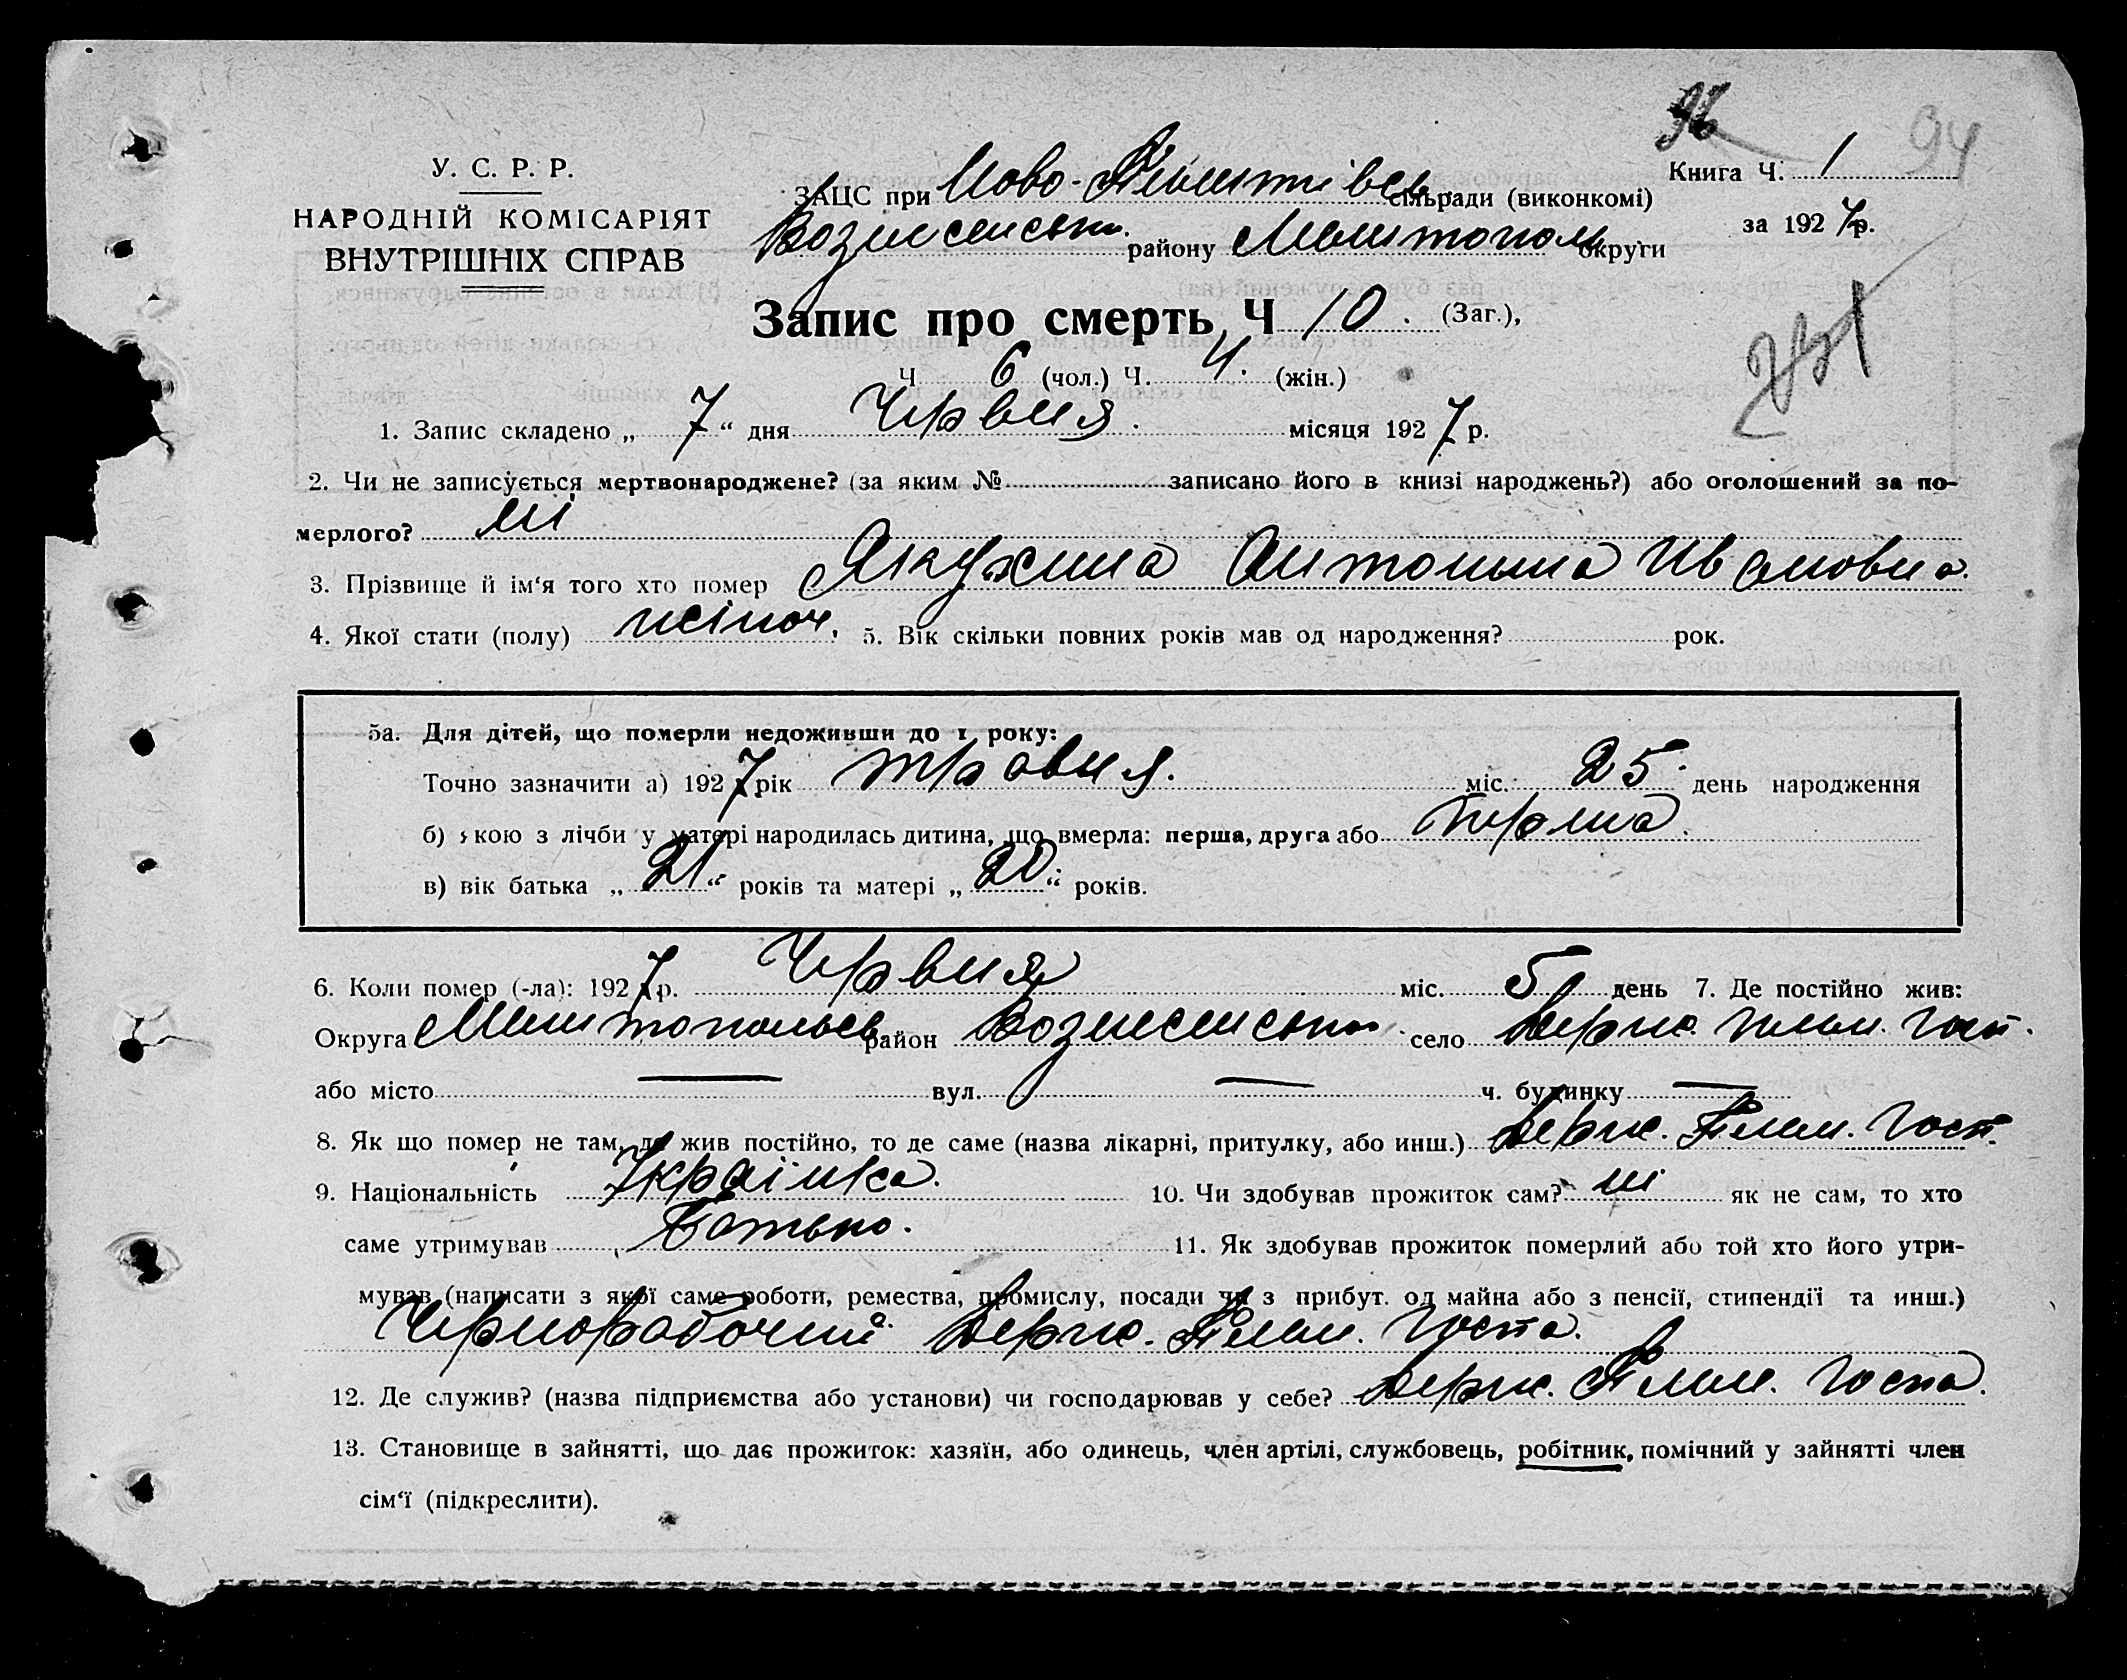 96 94
У. С. Р. Р.
НАРОДНІЙ КОМІСАРІЯТ
ВНУТРІШНІХ СПРАВ
ЗАЦС при Ново- сільради (виконкомі)
Книга Ч. 1
Вознесенськ. району Мелитополь округи
за 1927 р.
Запис про смерть Ч 10. (Заг.),
Ч 6 (чол.) Ч. 4. (жін.)
1. Запис складено „ 7 “ дня Червня. місяця 1927 р.
2. Чи не записується мертвонароджене? (за яким № записано його в книзі народжень?) або оголошений за по-
мерлого? ні
3. Прізвище й ім‘я того хто помер Якухина Антонина Ивановна.
4. Якої стати (полу) жіноч. 5. Вік скільки повних років мав од народження? рок.
5а. Для дітей, що померли недоживши до 1 року:
Точно зазначити а) 1927 рік травня. міс. 25. день народження
б) якою з лічби у матері народилась дитина, що вмерла: перша, друга або перша.
в) вік батька „ 21 “ років та матері „ 20 “ років.
6. Коли помер (-ла): 1927 р. Червня міс. 5 день 7. Де постійно жив:
Округа Мелитопольськ район Вознесенськ село Держ. Плем. Госп.
або місто — вул. — ч. будинку —
8. Як що помер не там, де жив постійно, то де саме (назва лікарні, притулку, або инш.) Держ. Плем. Госп.
9. Національність Українка. 10. Чи здобував прожиток сам? ні як не сам, то хто
саме утримував Батько. 11. Як здобував прожиток померлий або той хто його утри-
мував (написати з якої саме роботи, ремества, промислу, посади чи з прибут. од майна або з пенсії, стипендії та инш.)
Чернорабочий Держ. Плем. Госпа.
12. Де служив? (назва підприємства або установи) чи господарював у себе? Держ. Плем. Госпа.
13. Становище в зайнятті, що дає прожиток: хазяїн, або одинець, член артілі, службовець, робітник, помічний у зайнятті член
сім‘ї (підкреслити).